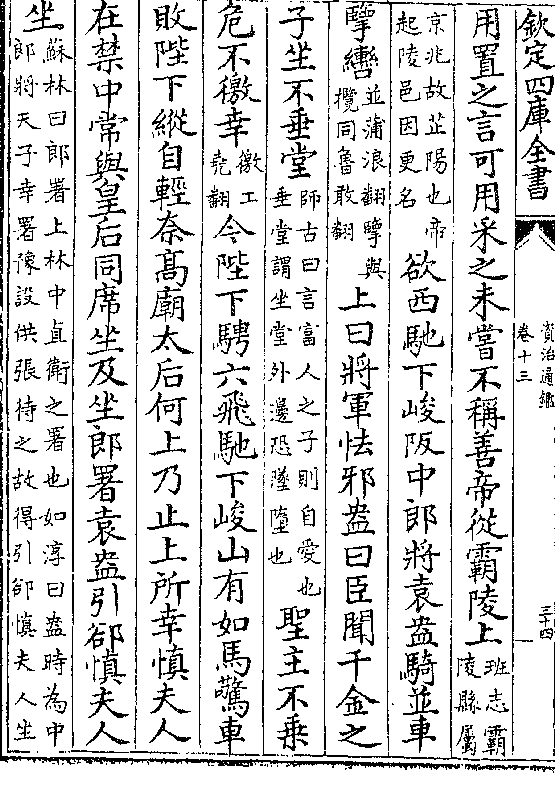 欽定四庫全書
資治通鑑
卷十三
三十四
用置之言可用采之未嘗不稱善帝從霸陵上
班志霸
陵縣屬
京兆故芷陽也帝
起陵邑因更名
欲西馳下峻阪中郎將袁盎騎並車
擥轡
並蒲浪翻擥與
攬同魯敢翻
上曰將軍怯邪盎曰臣聞千金之
子坐不垂堂
師古曰言富人之子則自愛也
垂堂謂坐堂外邊恐墜墮也
聖主不乗
危不徼幸
徼工
堯翻
今陛下騁六飛馳下峻山有如馬驚車
敗陛下縱自輕奈髙廟太后何上乃止上所幸慎夫人
在禁中常與皇后同席坐及坐郎署袁盎引郤慎夫人
坐
蘇林曰郎署上林中直衛之署也如淳曰盎時為中
郎將天子幸署豫設供張待之故得引郤慎夫人坐